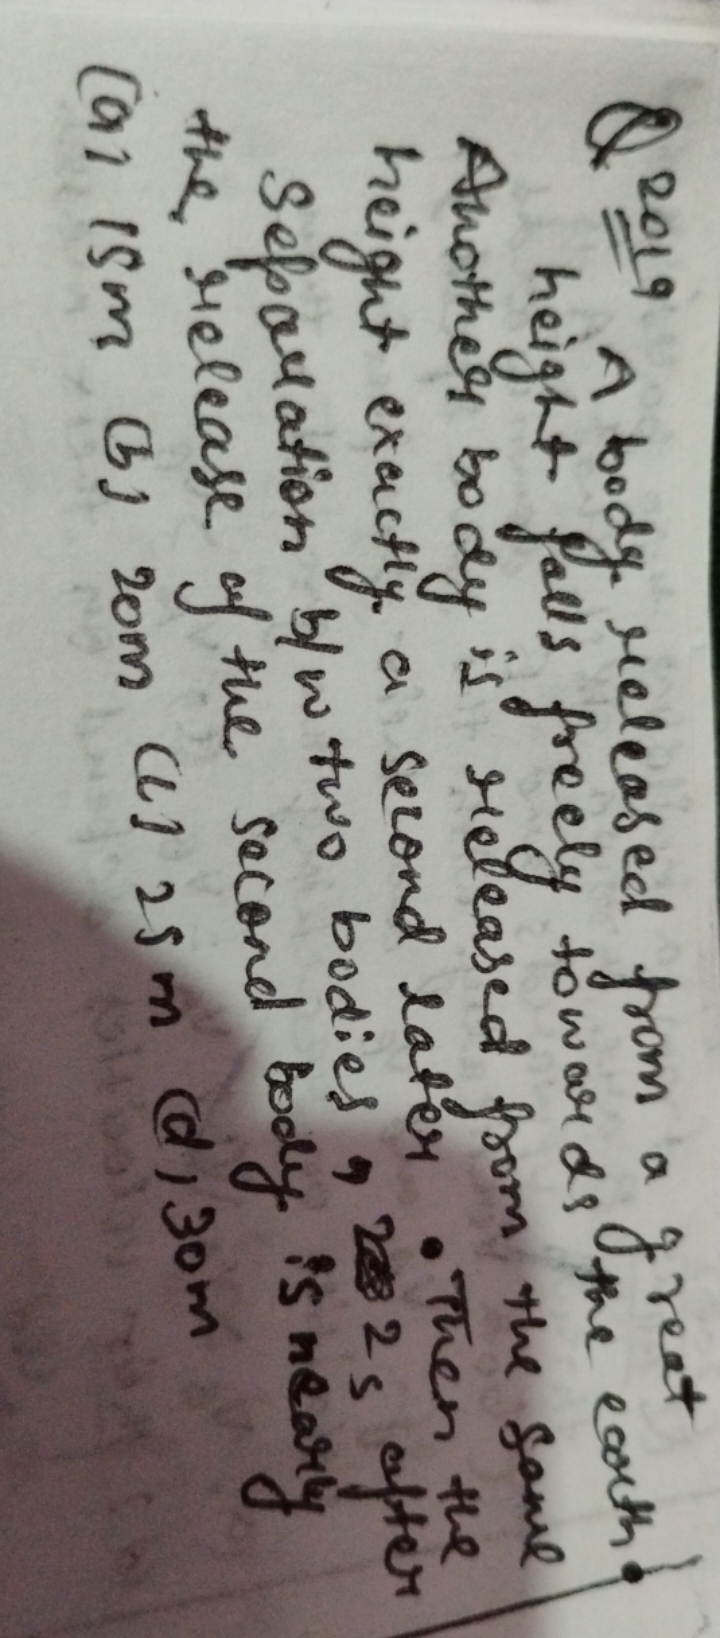 Q 2019 A body released from a great
height falls freely towards the earth.
Another body is released from the same
height exactly a second later. Then the
separation b/w two bodies, 2s after
the release of the second body is nearly
(a) 15m (b) 20m (c) 25m (d) 30m